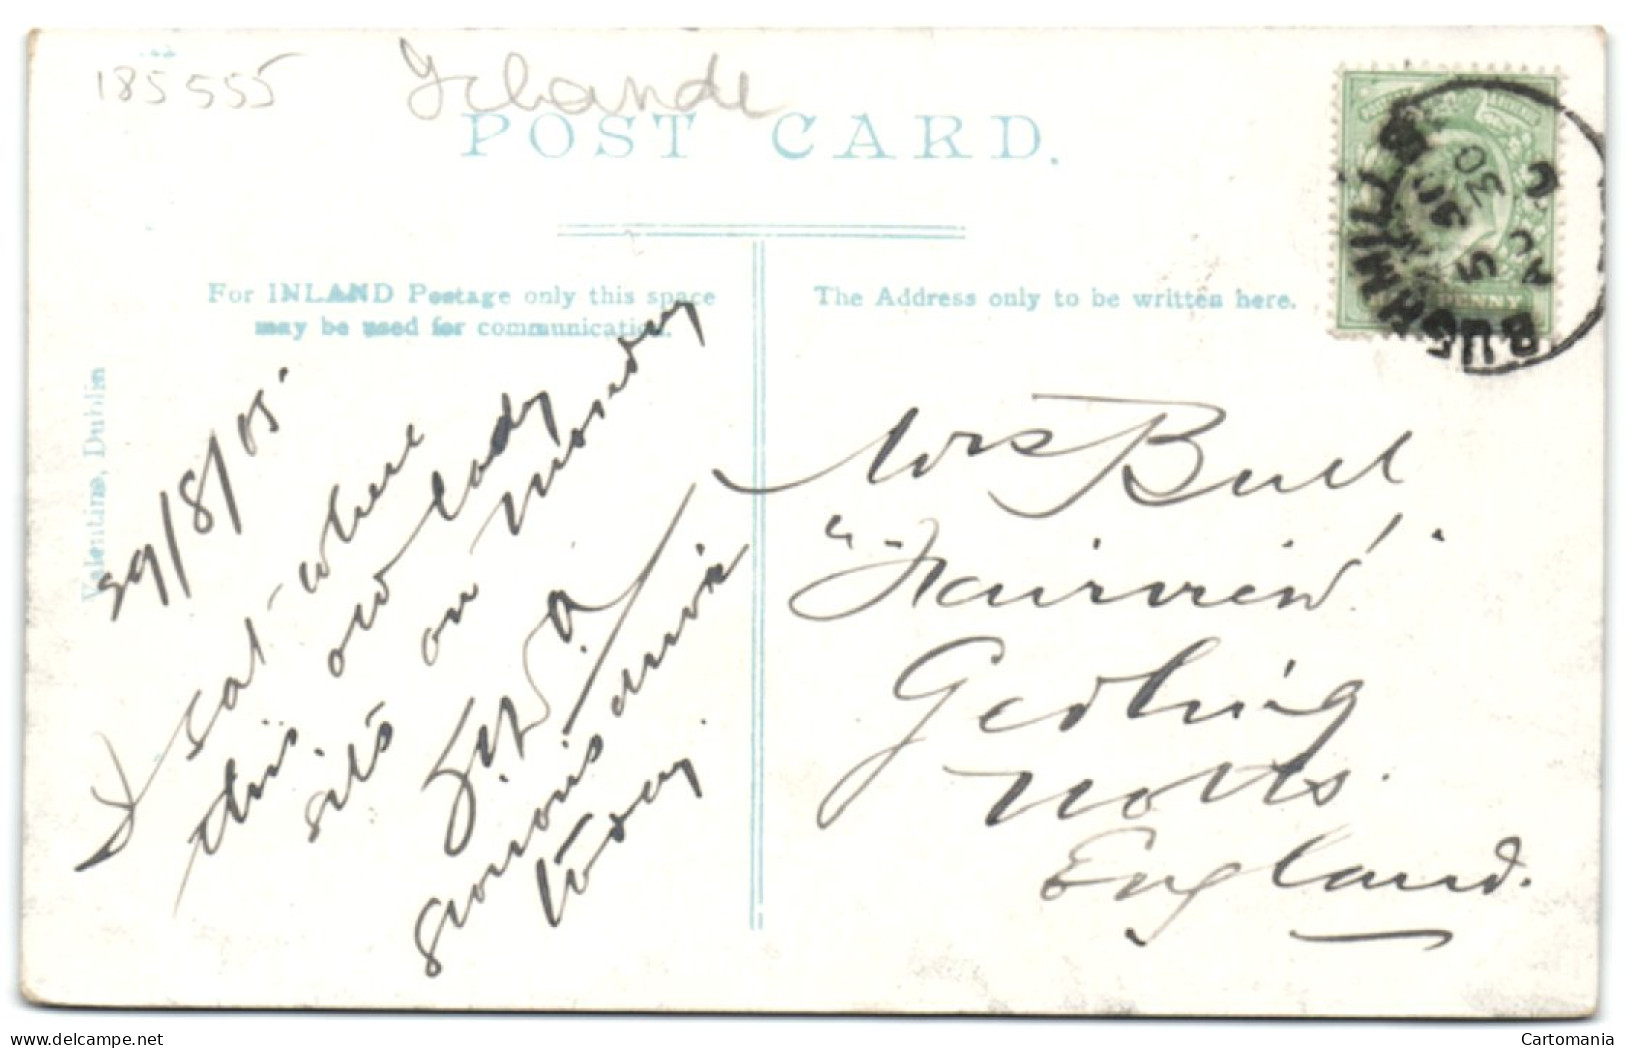 185555 Irlande
POST CARD.
For INLAND Postage only this space
may be used for communication.
The Address only to be written here.
Valentine, Dublin
BUSHMILLS
AU 30
05
HALFPENNY
29/8/05.
I sat where
this old lady
sits on Monday
glorious drive
today.
Mrs Bull
"Fairview"
Gedling
Notts.
England.
Cartomania